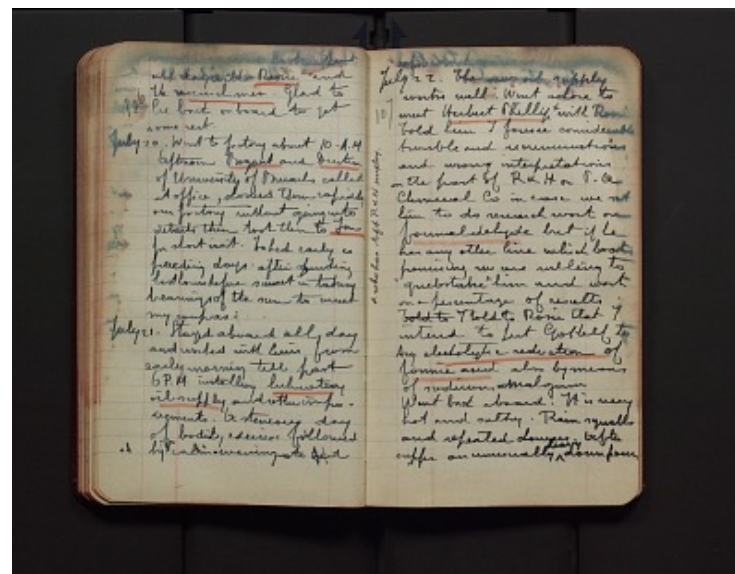 and Rossi and
the research men. Glad to
be back on board to get
some rest.
July 20. Went to factory about 10-A.M
Afternoon and
of University of Brussels called
at office, showed them rapidly
our factory without going into
details then took them to
for short visit. To bed early as
preceding days after spending
before sunset in taking
bearings of the sun to correct
my compas:
July 21. Stayed aboard all day
and worked with Louis, from
early morning till past
6 P.M. installing lubricating
oil supply and other impro-
vements. A strenuous day
of bodily exercise followed
by
July 22. The new oil supply
works well. Went ashore to
meet Herbert Phillip with Rossi
told him I foresee considerable
trouble and recriminations
and wrong interpretations
on the part of R & H or P. A.
Chemical Co in case we set
him to do research work on
formaldehyde but if he
has any other line which looks
promising we are willing to
him and work
on a percentage of results
Told to Rossi that I
intend to put Gottlob to
try electrolytic reduction of
formic acid also by means
of sodium amalgam
Went back aboard. It is very
hot and sultry. Rain squalls
and repeated After
supper an unusually heavy downpour
who has left R & H company